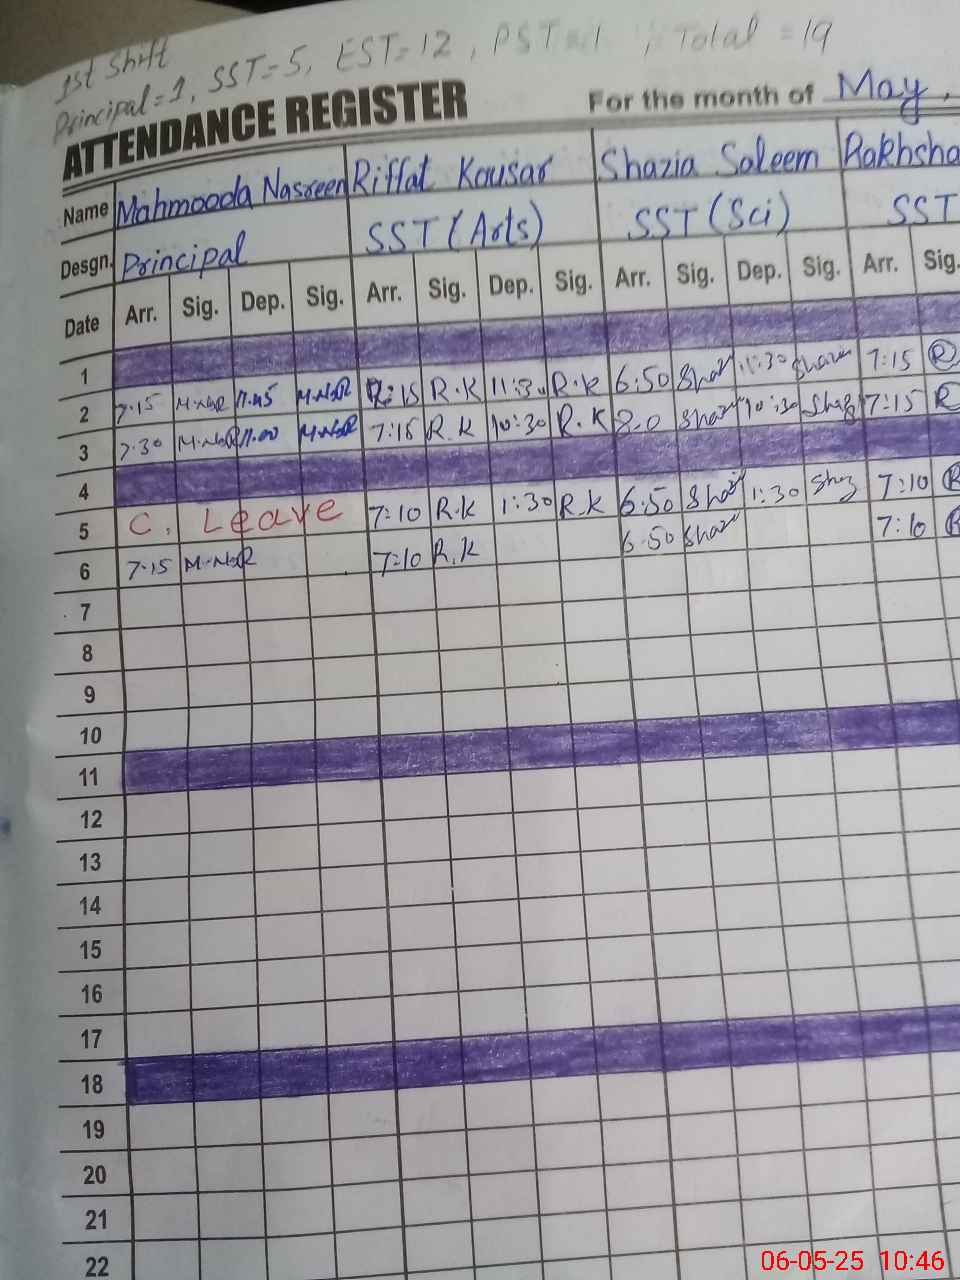 1st Shift
Principal=1, SST=5, EST=12, PST=1, Total=19
ATTENDANCE REGISTER For the month of May,
Name Mahmooda Nasreen Riffat Kousar Shazia Saleem Rakhsha
Desgn. Principal SST (Arts) SST (Sci) SST
Date Arr. Sig. Dep. Sig. Arr. Sig. Dep. Sig. Arr. Sig. Dep. Sig. Arr. Sig.
1
2 7:15 11:45 7:15 R.K 11:30 R.K 6:50 11:30 7:15 R
3 7:30 11:00 7:15 R.K 10:30 R.K 8.0 10:30 7:15 R
4
5 C. Leave 7:10 R.K 1:30 R.K 6:50 1:30 7:10 R
6 7:15 7:10 R.K 6:50 7:10 R
7
8
9
10
11
12
13
14
15
16
17
18
19
20
21
22
06-05-25 10:46